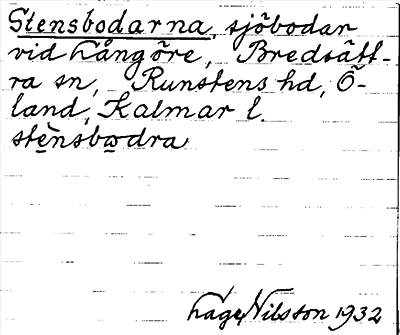 Stensbodarna, sjöbodar
vid Långöre, Bredsätt-
ra sn, Runstens hd, Ö-
land, Kalmar l.
stènsbωdra
Lage Nilsson 1932